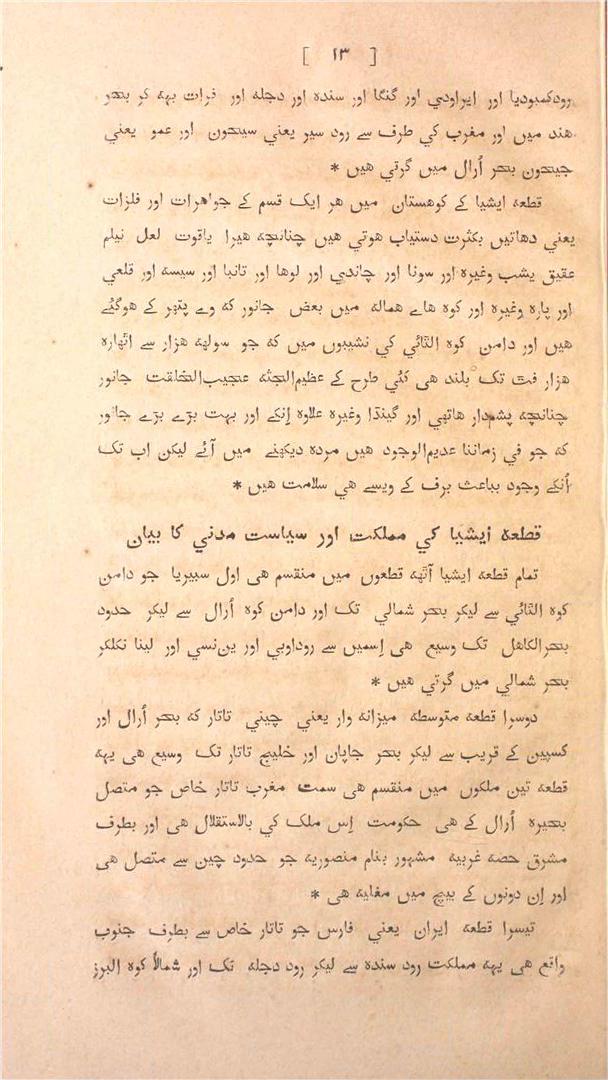 [ ١٣ ]
رودکمبودیا اور ایراودي اور گنگا اور سندہ اور دجلہ اور فرات بہہ کر بحر
ہند میں اور مغرب کي طرف سے رود سیر یعني سیحون اور عمو یعني
جیحون بحر اُرال میں گرتي ہیں *
قطعہ ایشیا کے کوہستان میں ہر ایک قسم کے جواہرات اور فلزات
یعني دھاتیں بکثرت دستیاب ہوتي ہیں چنانچہ ہیرا یاقوت لعل نیلم
عقیق یشب وغیرہ اور سونا اور چاندي اور لوہا اور تانبا اور سیسہ اور قلعي
اور پارہ وغیرہ اور کوہ ہاے ہمالہ میں بعض جانور کہ وے پتھر کے ہوگئے
ہیں اور دامن کوہ الٹائي کي نشیبوں میں کہ جو سولھہ ہزار سے اٹھارہ
ہزار فٹ تک بلند ہی کئي طرح کے عظیم‌الجثہ عجیب‌الخلقت جانور
چنانچہ پشم‌دار ہاتھي اور گینڈا وغیرہ علاوہ اِنکے اور بہت بڑے بڑے جانور
کہ جو في زماننا عدیم‌الوجود ہیں مردہ دیکھنے میں آئے لیکن اب تک
اُنکے وجود بباعث برف کے ویسے ہي سلامت ہیں *
قطعہ ایشیا کي مملکت اور سیاست مدني کا بیان
تمام قطعہ ایشیا آٹھہ قطعوں میں منقسم ہی اول سبیریا جو دامن
کوہ الٹائي سے لیکر بحر شمالي تک اور دامن کوہ اُرال سے لیکر حدود
بحرالکاہل تک وسیع ہی اِسمیں سے روداوبي اور ین‌نسي اور لینا نکلکر
بحر شمالي میں گرتي ہیں *
دوسرا قطعہ متوسطہ میزانہ وار یعني چیني تاتار کہ بحر اُرال اور
کسپین کے قریب سے لیکر بحر جاپان اور خلیج تاتار تک وسیع ہی یہہ
قطعہ تین ملکوں میں منقسم ہی سمت مغرب تاتار خاص جو متصل
بحیرہ اُرال کے ہی حکومت اِس ملک کي بالاستقلال ہی اور بطرف
مشرق حصہ غربیہ مشہور بنام منصوریہ جو حدود چین سے متصل ہی
اور اِن دونوں کے بیچ میں مغلیہ ہی *
تیسرا قطعہ ایران یعني فارس جو تاتار خاص سے بطرف جنوب
واقع ہی یہہ مملکت رود سندہ سے لیکر رود دجلہ تک اور شمالاً کوہ البرز